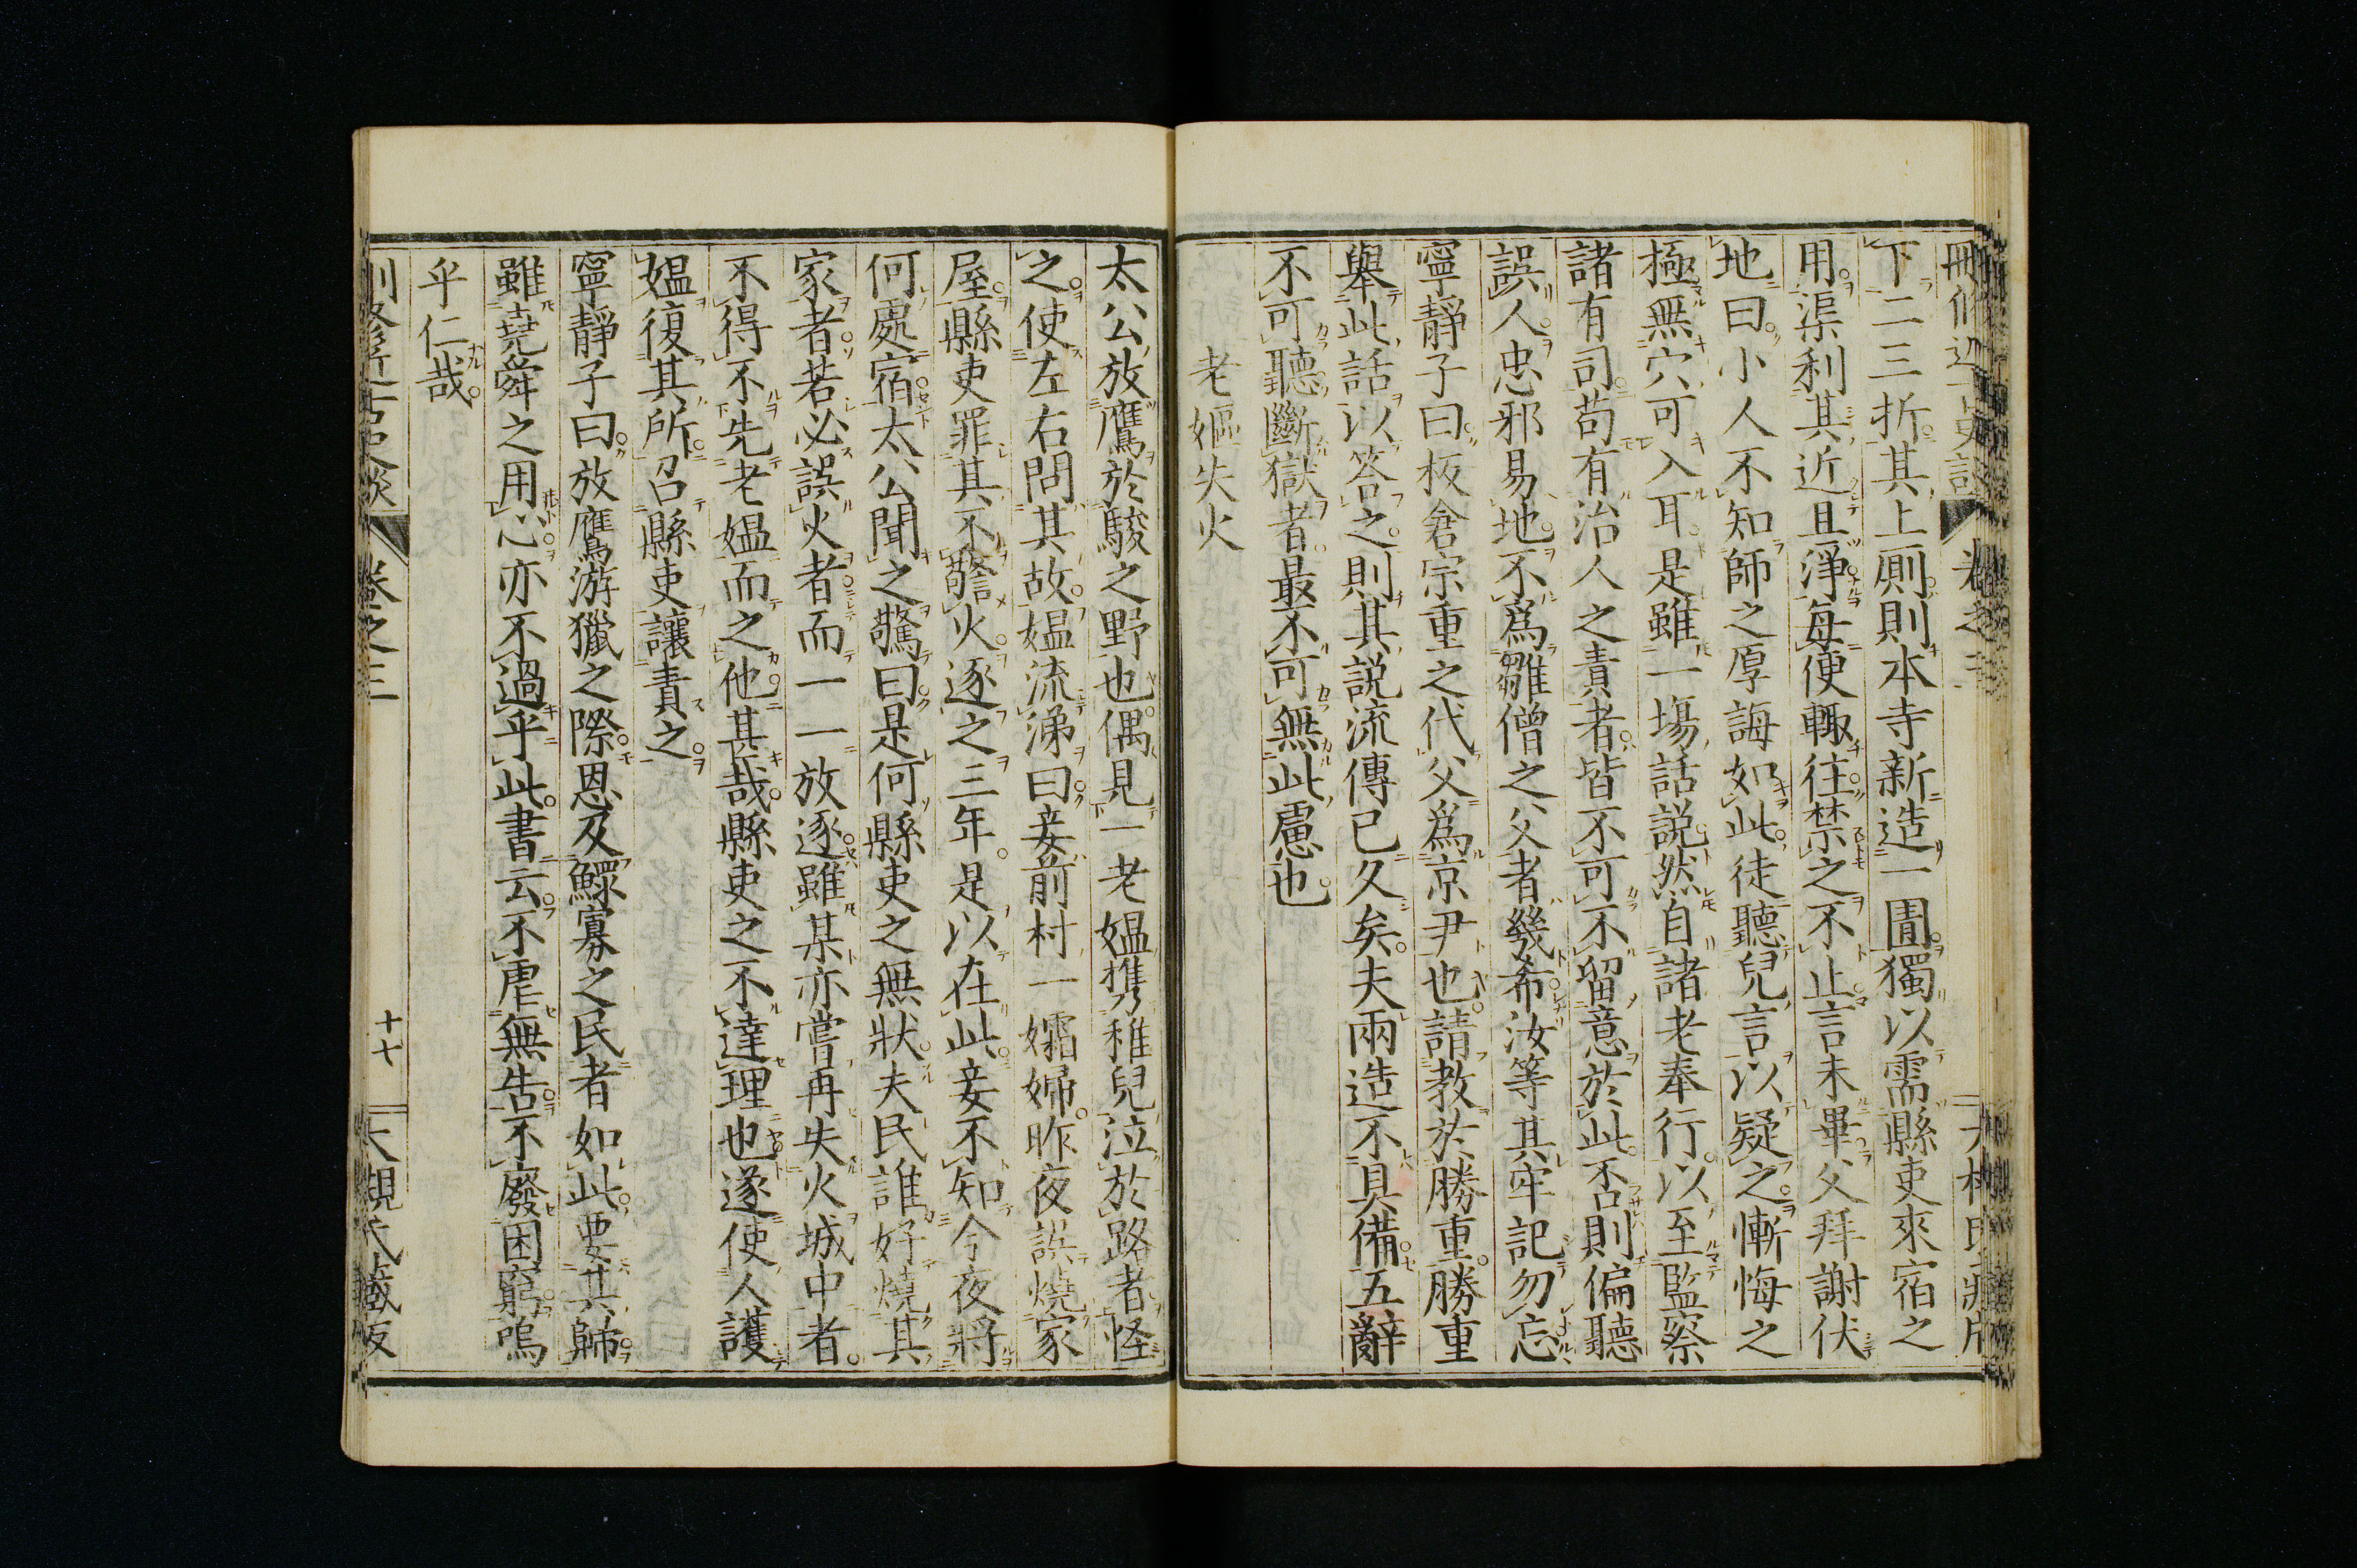 下二三折其上厠則本寺新造一圊獨以需縣吏來宿之
用渠利其近且淨每便輙往禁之不止言未畢父拜謝伏
地曰小人不知師之厚誨如此徒聽兒言以疑之慚悔之
極無穴可入耳是雖一場話說然自諸老奉行以至監察
諸有司苟有治人之責者皆不可不留意於此否則偏聽
誤人忠邪易地不爲雛僧之父者幾希汝等其牢記勿忘
寧靜子曰板倉宗重之代父爲京尹也請教於勝重勝重
舉此話以答之則其說流傳已久矣夫兩造不具備五辭
不可聽斷獄者最不可無此慮也
老嫗失火
太公放鷹於駿之野也偶見一老媼携稚兒泣於路者怪
之使左右問其故媼流涕曰妾前村一孀婦昨夜誤燒家
屋縣吏罪其不警火逐之三年是以在此妾不知今夜將
何處宿太公聞之驚曰是何縣吏之無狀夫民誰好燒其
家者若必誤火者而一一放逐雖某亦嘗再失火城中者
不得不先老媼而之他其哉縣吏之不達理也遂使人護
媼復其所召縣吏讓責之
寧靜子曰放鷹游獵之際恩及鰥寡之民者如此要其歸
雖堯舜之用心亦不過乎此書云不虐無告不廢困窮嗚
乎仁哉
卷之三
十七